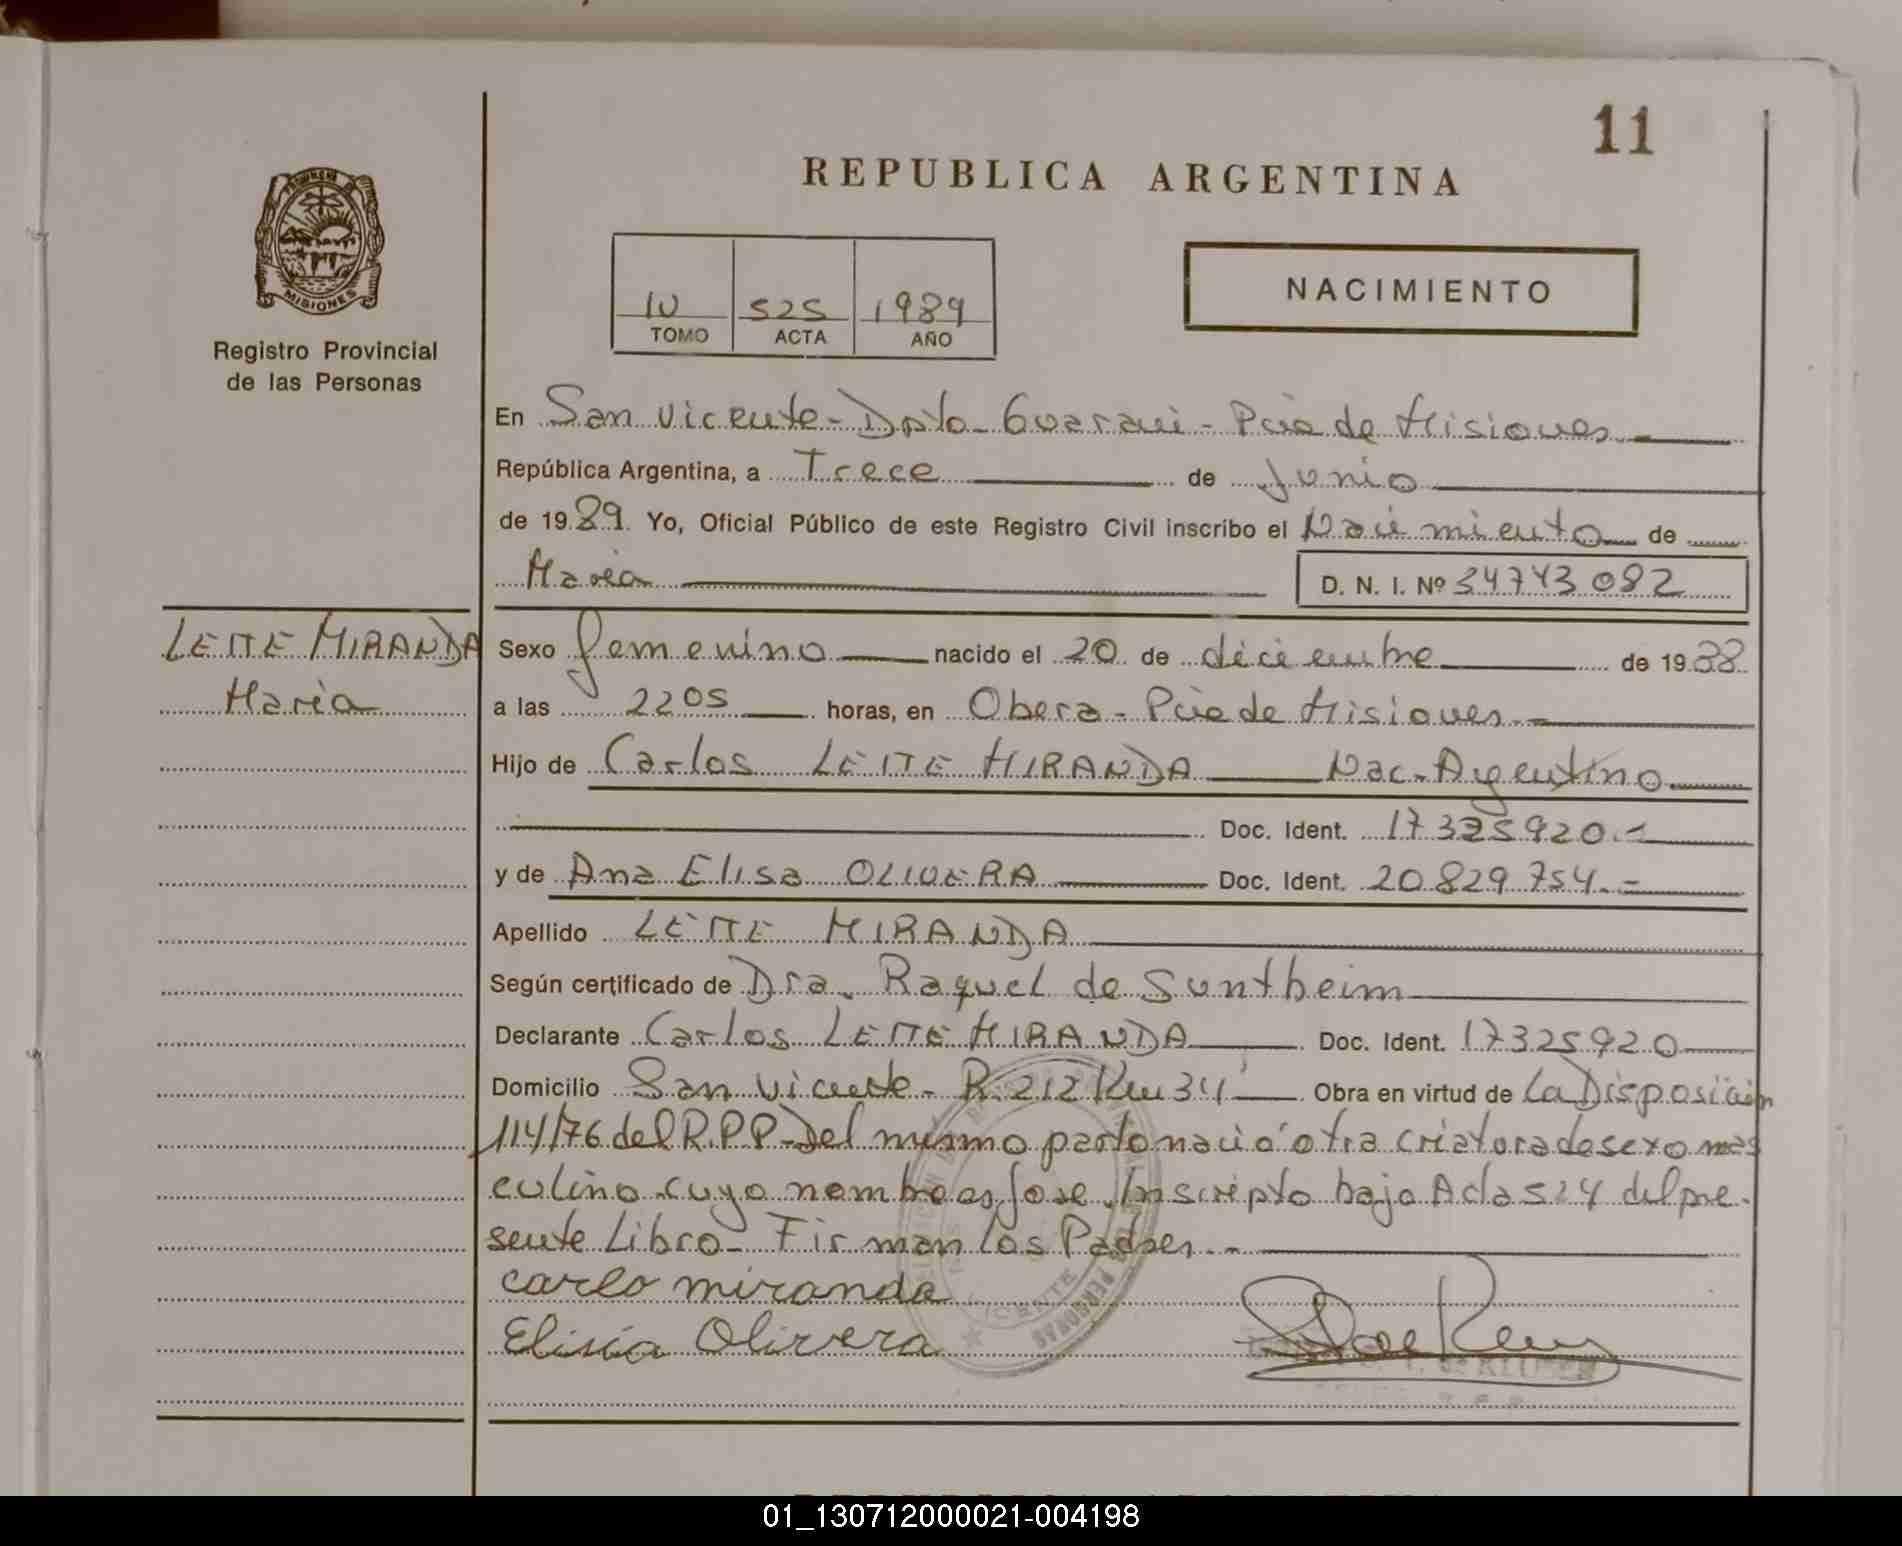 11
REPUBLICA ARGENTINA
MISIONES
Registro Provincial
de las Personas
IV 525 1989
TOMO ACTA AÑO
NACIMIENTO
En San Vicente - Dpto - Guarani - Pcia de Misiones
República Argentina, a Trece de Junio
de 1989. Yo, Oficial Público de este Registro Civil inscribo el Nacimiento de
Maria D. N. I. Nº 34743082
LEITE MIRANDA
Maria
Sexo femenino nacido el 20 de diciembre de 1988
a las 2205 horas, en Obera - Pcia de Misiones.-
Hijo de Carlos LEITE MIRANDA Nac. Argentino
Doc. Ident. 17325920.-
y de Ana Elisa OLIVERA Doc. Ident. 20829754.-
Apellido LEITE MIRANDA
Según certificado de Dra. Raquel de Sontheim
Declarante Carlos LEITE MIRANDA Doc. Ident. 17325920
Domicilio San Vicente - R. 212 Km 34 Obra en virtud de La Disposición
114/76 del R.P.P - Del mismo parto nació otra criatura de sexo mas
culino cuyo nombre es Jose. Inscripto bajo Acta 524 del pre-
sente Libro - Firman los Padres.-
carlo miranda
Elisia Olivera
VICENTE
PERSONAS
01_130712000021-004198